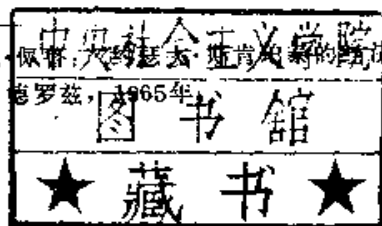 中央社会主义学院
德罗兹，1965年
图书馆
★藏书★